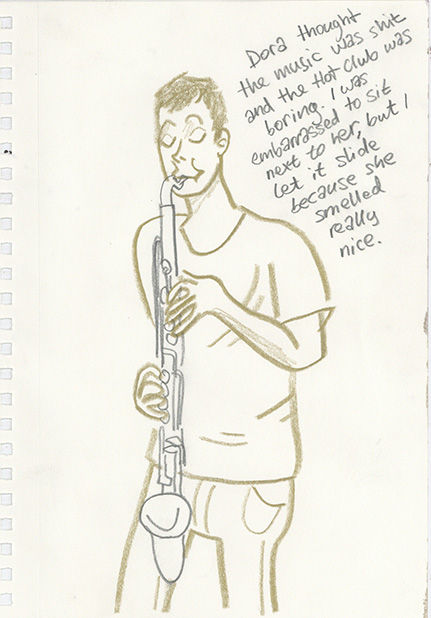 Dora thought
the music was shit
and the Hot Club was
boring. I was
embarrassed to sit
next to her, but I
let it slide
because she
smelled
really
nice.